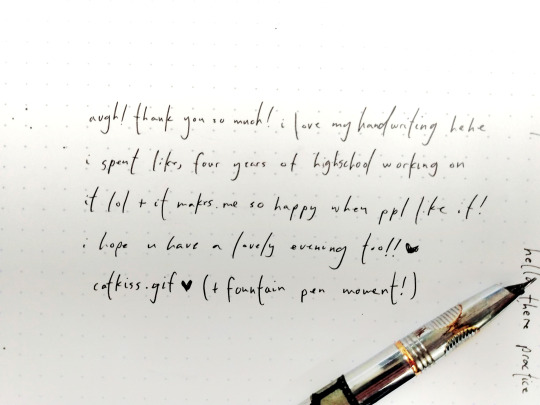 augh! thank you so much! i love my handwriting hehe
i spent like, four years of highschool working on
it lol + it makes me so happy when ppl like it!
i hope u have a lovely evening too!! ♥
catkiss.gif ♥ (+ fountain pen moment!)
hello there practice